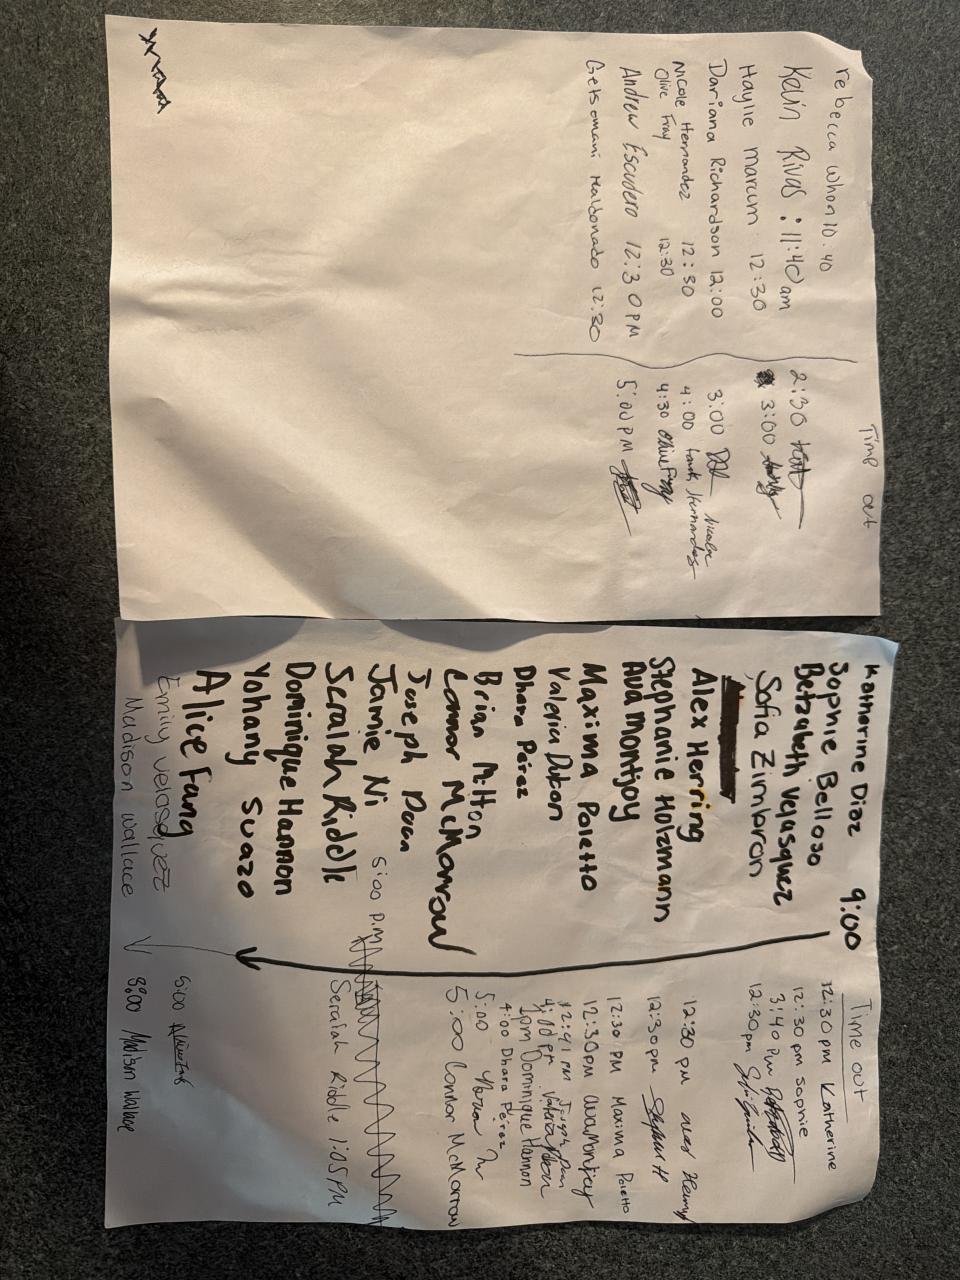 Katherine Diaz 9:00
Sophie Belloso
Betzabeth Velasquez
Sofia Zimbron
Alex Herring
Stephanie Holzmann
Ava Montjoy
Maxima Poletto
Valeria Duton
Dhara Pérez
Brian Milton
Connor McMorrow
Joseph Dean
Jamie Ni 5:00 P.M
Seraiah Riddle
Dominique Hannon
Yohany Suazo
Alice Fang
Emily Velasquez
Madison Wallace
Time out
12:30 pm Katherine
12:30 pm Sophie
3:40 Pm
12:30pm
12:30 pm Alex Herring
12:30pm
12:30 PM Maxima Poletto
12:30pm Ava Montjoy
12:41 PM Joseph Dean
4:00 pm Valeria
1pm Dominique Hannon
4:00 Dhara Pérez
5:00
5:00 Connor McMorrow
Seraiah Riddle 1:05 PM
5:00
3:00 Madison Wallace
rebecca Whon 10:40
Kevin Rivas : 11:40am
Haylie marcum 12:30
Dariana Richardson 12:00
Nicole Hernandez 12:30
Olive Fray 12:30
Andrew Escudero 12:30 PM
Getsomani Maldonado 12:30
Time out
2:30
3:00
3:00
4:00 Nicole Hernandez
4:30 Olive Fray
5:00 PM